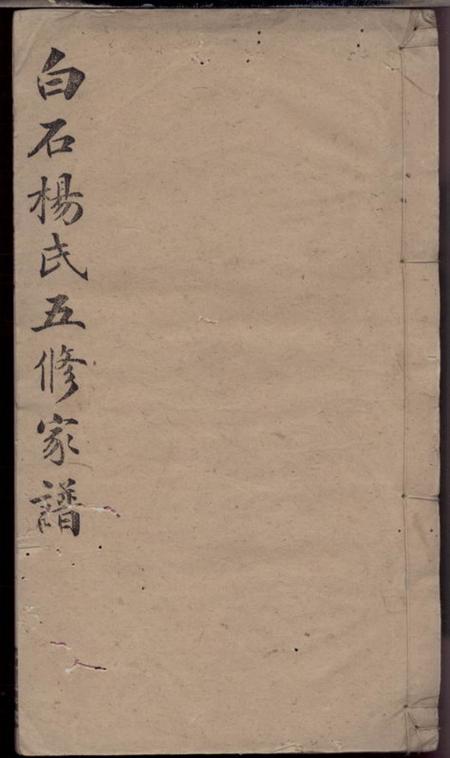 白石楊氏五修家譜